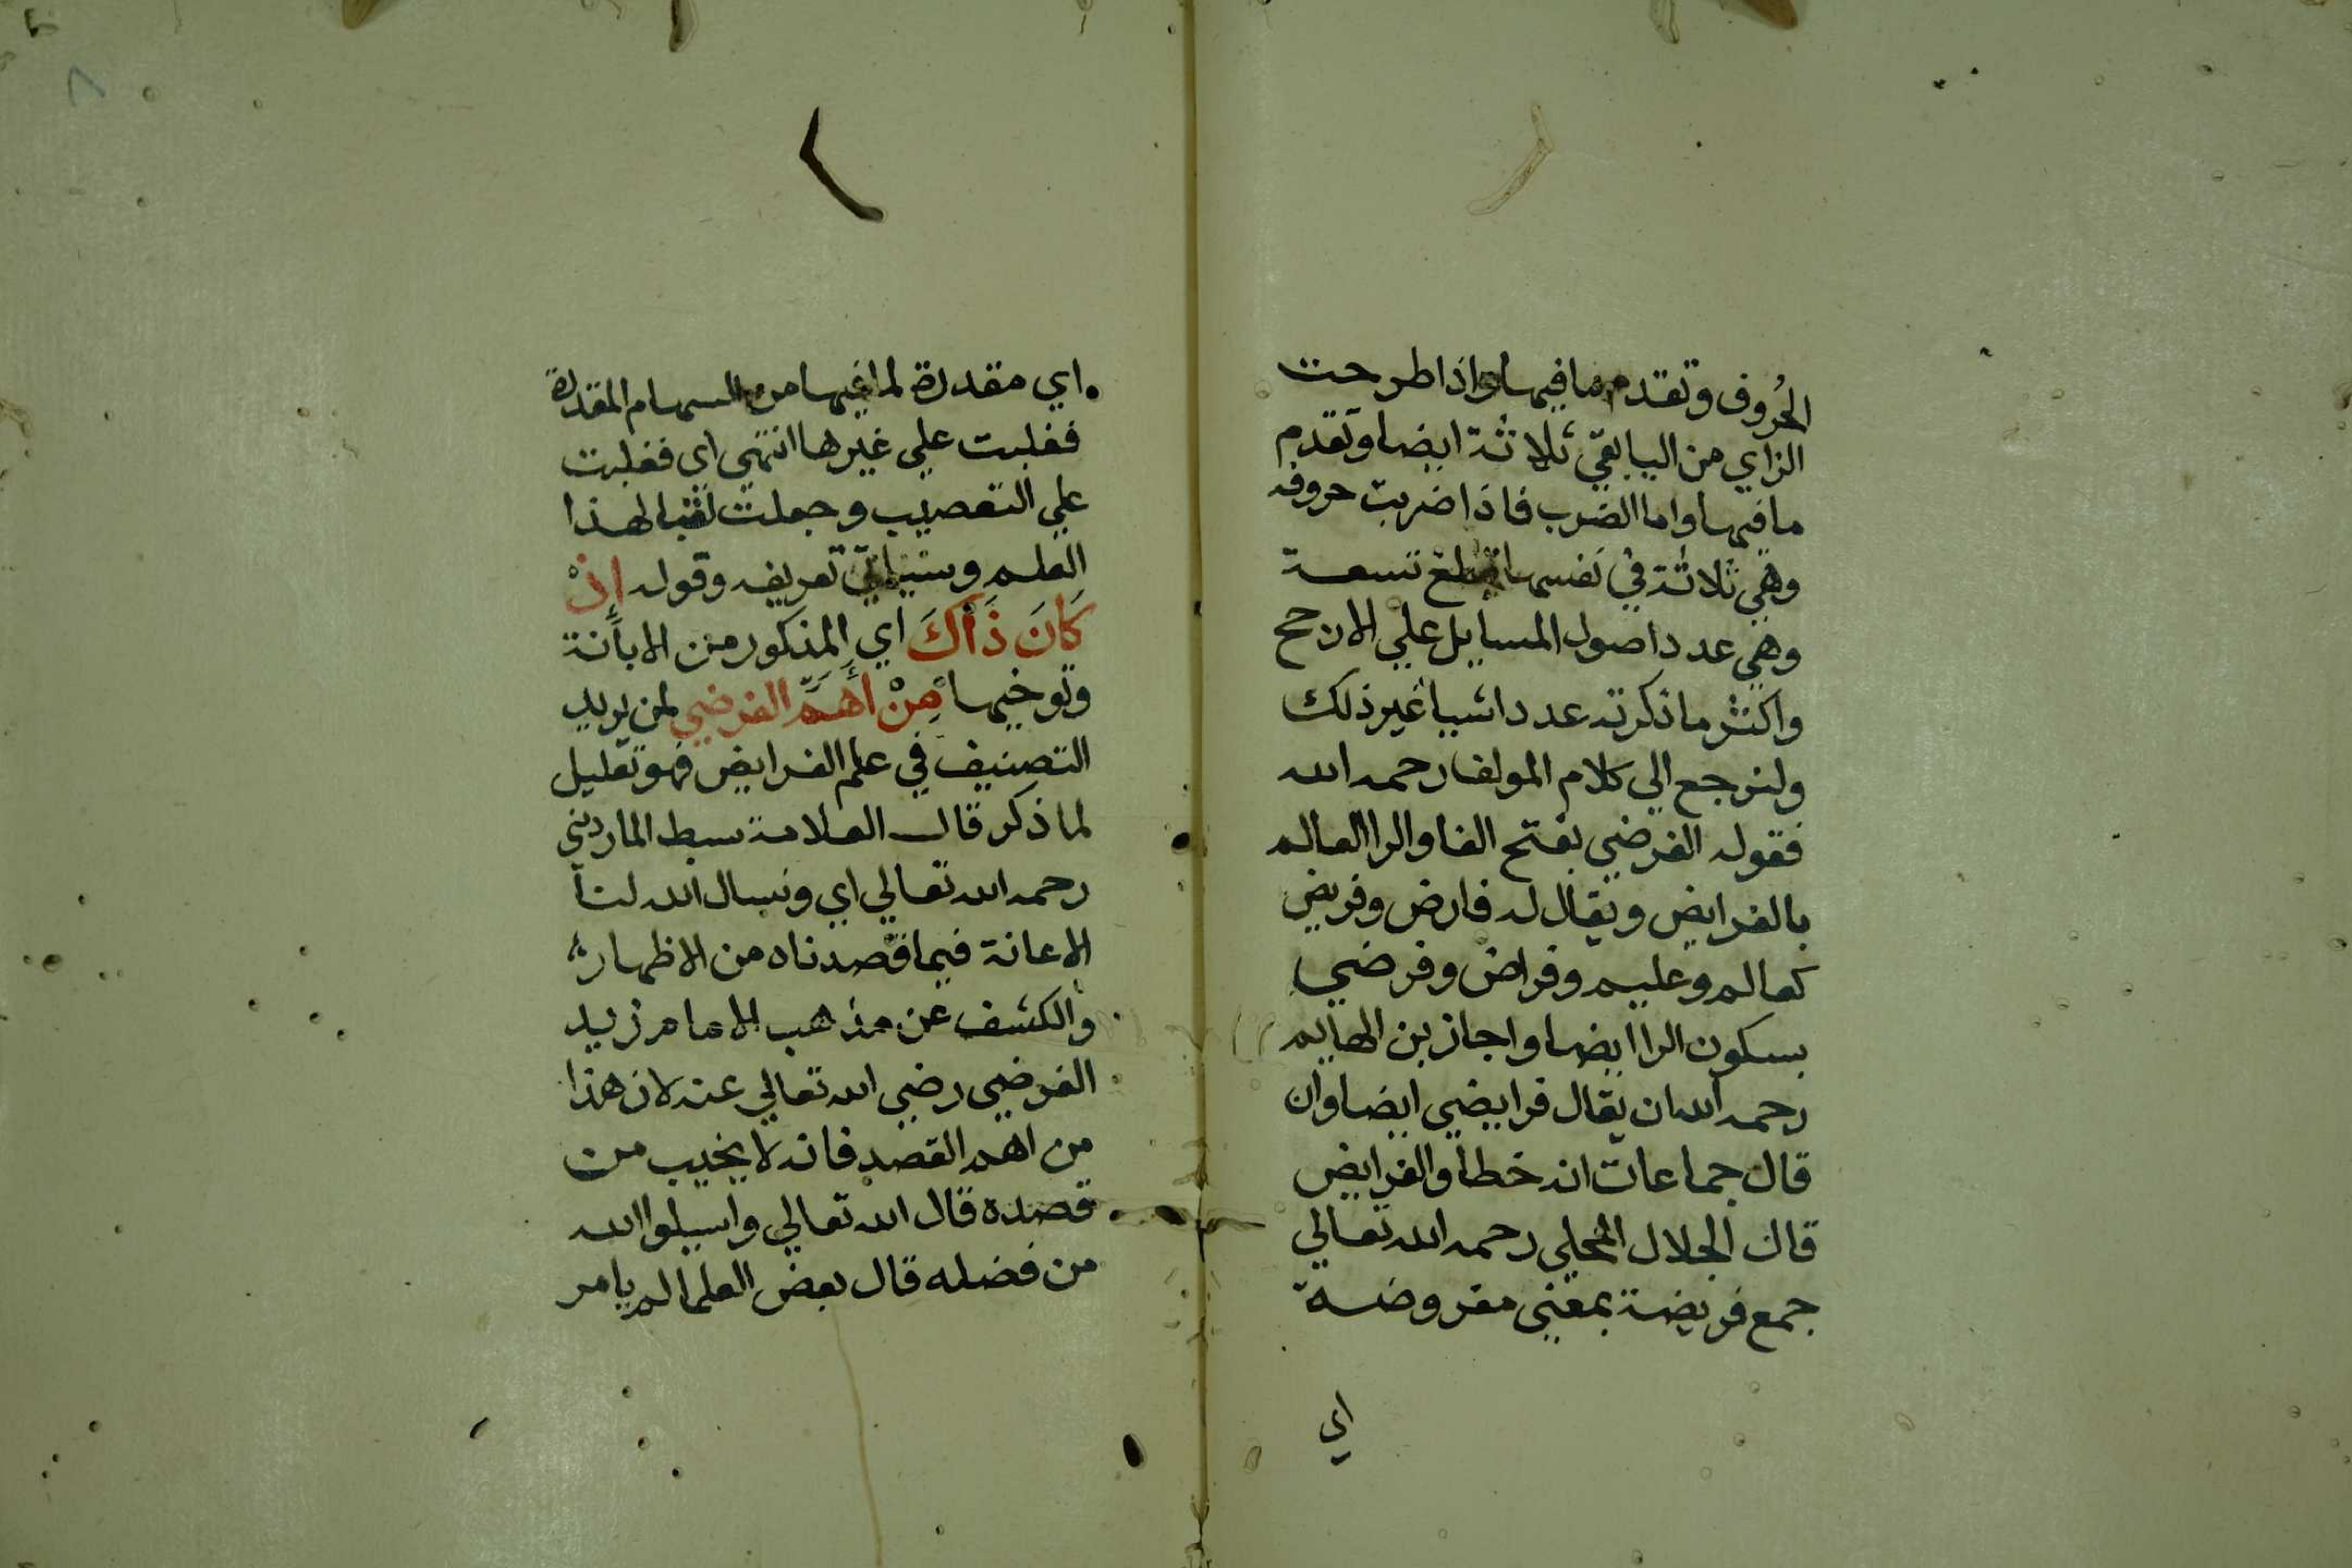 الحُروف وتقدم ما فيها واذا طرحت
الزاي من اليا بقي ثلاثة ايضا وتقدم
ما فيها واما الضرب فاذا ضربت حروفه
وهي ثلاثة في نفسها تبلغ تسعة
وهي عدد اصول المسايل علي الارجح
واكثر ما ذكرته عدد اشيا غير ذلك
ولنرجع الي كلام المولف رحمه الله
فقوله الفرضي بفتح الفا والرا العالم
بالفرايض ويقال له فارض وفريض
كعالم وعليم وفراض وفرضي
بسكون الرا ايضا واجاز بن الهايم
رحمه الله ان يقال فرايضي ايضا وان
قال جماعات انه خطا والفرايض
قال الجلال المحلي رحمه الله تعالي
جمع فريضة بمعني مفروضة
اي
اي مقدرة لما فيها من السهام المقدرة
فغلبت علي غيرها انتهي اي فغلبت
علي التعصيب وجعلت لقبا لهذا
العلم وسياتي تعريفه وقوله إذْ
كَانَ ذَاكَ اي المذكور من الابانة
وتوخيها مِنْ أَهَمِّ الغرض لمن يريد
التصنيف في علم الفرايض فهو تعليل
لما ذكر قال العلامة سبط المارديني
رحمه الله تعالي اي ونسال الله لنا
الاعانة فيما قصدناه من الاظهار
والكشف عن مذهب الامام زيد
الفرضي رضي الله تعالي عنه لان هذا
من اهم القصد فانه لا يخيب من
قصده قال الله تعالي واسيلوا الله
من فضله قال بعض العلما لم يامر